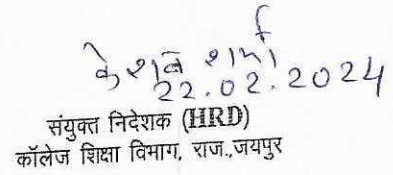 केशव शर्मा
22.02.2024
संयुक्त निदेशक (HRD)
कॉलेज शिक्षा विभाग, राज.,जयपुर